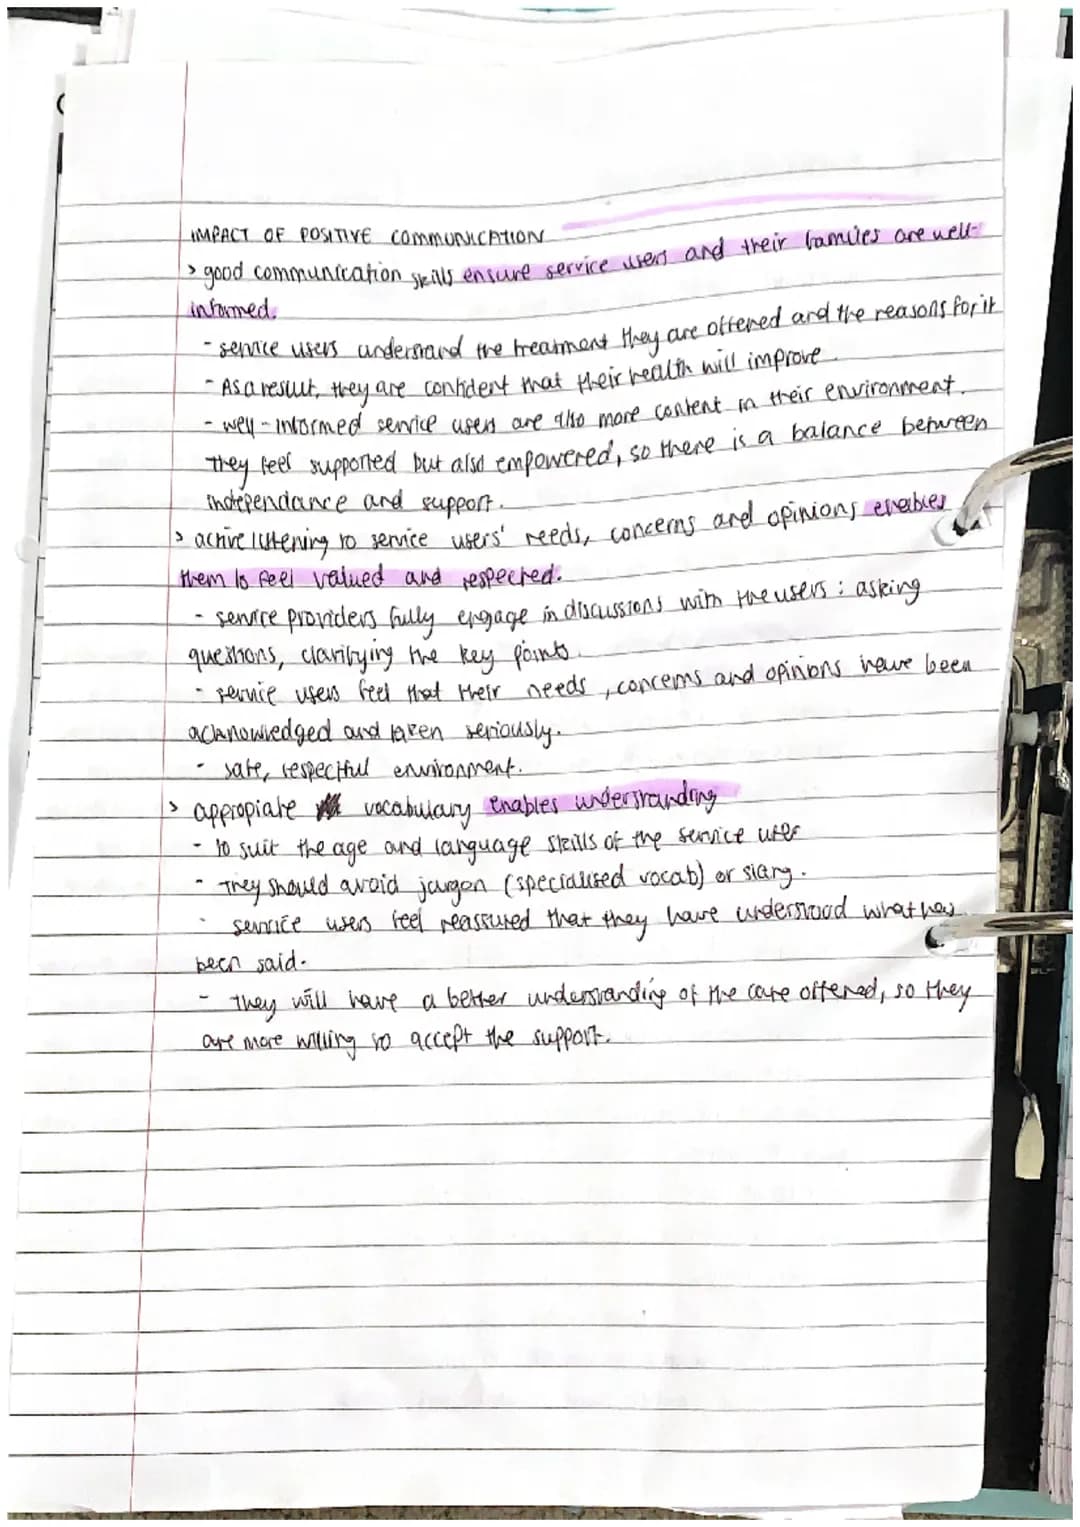 IMPACT OF POSITIVE COMMUNICATION
> good communication skills ensure service users and their families are well-
informed.
- service users understand the treatment they are offered and the reasons for it
- As a result, they are confident that their health will improve.
- well-informed service users are also more content in their environment.
They feel supported but also empowered, so there is a balance between
independance and support.
> active listening to service users' needs, concerns and opinions enables
them to feel valued and respected.
- service providers fully engage in discussions with the users: asking
questions, clarifying the key points.
- service users feel that their needs, concerns and opinions have been
acknowledged and taken seriously.
- safe, respectful environment.
> appropiate vocabulary enables understanding
- to suit the age and language skills of the service user
- They should avoid jargon (specialised vocab) or slang.
- service users feel reassured that they have understood what has
been said.
- They will have a better understanding of the care offered, so they
are more willing to accept the support.